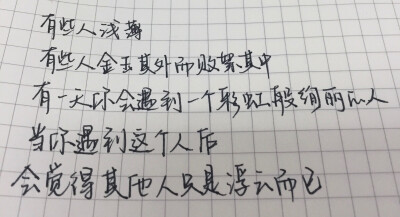 有些人浅薄
有些人金玉其外而败絮其中
有一天你会遇到一个彩虹般绚丽的人
当你遇到这个人后
会觉得其他人只是浮云而已